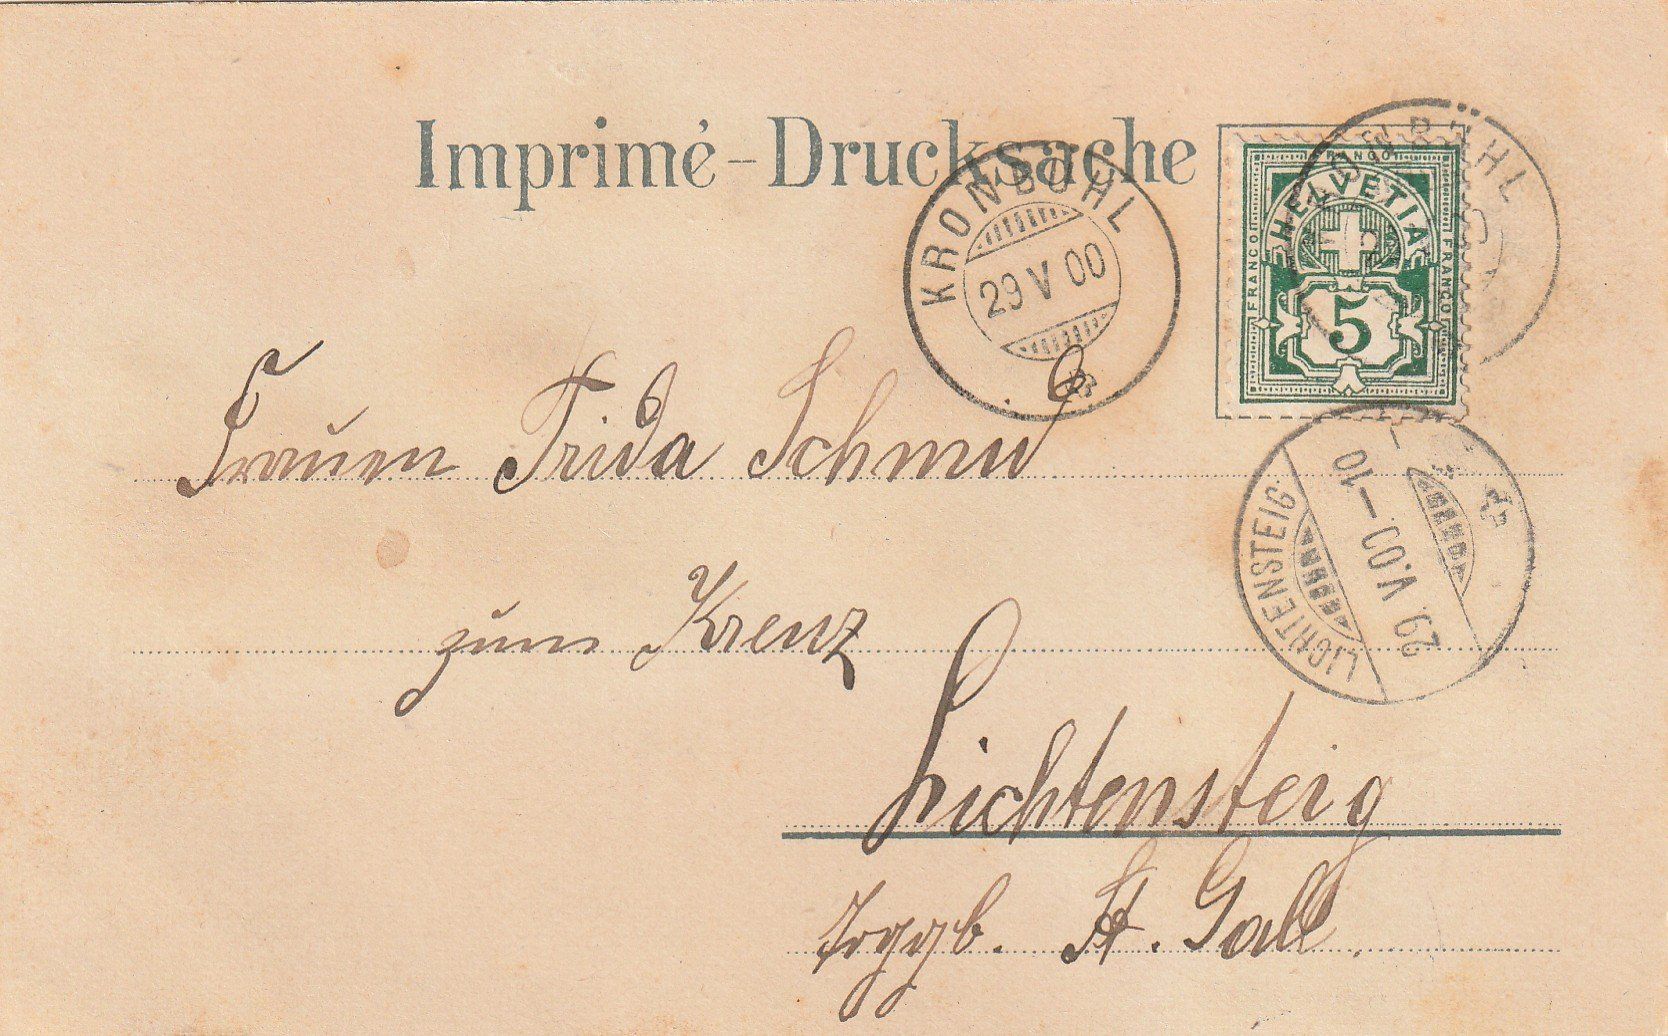 Imprimé-Drucksache
KRONBÜHL
29 V 00
KRONBÜHL
FRANCO
FRANCO
HELVETIA
FRANCO
5
Frauen Frida Schmid
zum Kreuz
LICHTENSTEIG
29 V.00–10
Lichtensteig
Toggb. St. Gall.